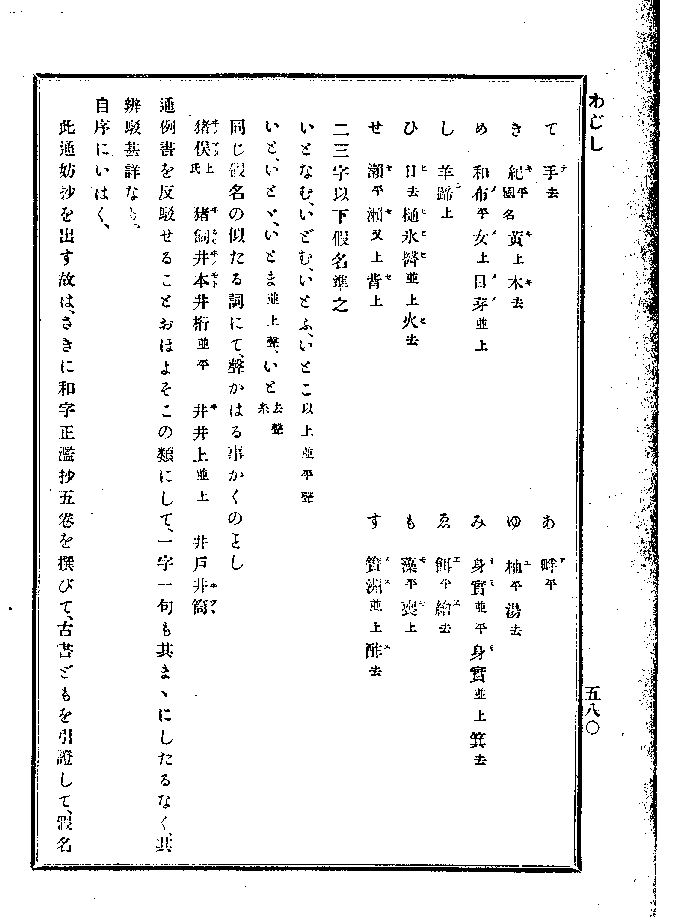 わじし
五八〇
て 手去
あ 畔平
き 紀平國名 黄上 木去
ゆ 柚平 湯去
め 和布平 女上 目芽並上
み 身實並平 身實並上 箕去
し 羊蹄上
ゑ 餌平 繪去
ひ 日去 樋氷醫並上 火去
も 藻平 喪上
せ 瀬平 瀬又上 背上
す 簀洲並上 酢去
二三字以下假名準之
いとなむ、いどむ、いとふ、いとこ以上並平聲
いと、いとゞ、いとま並上聲、いと去聲糸
同じ假名の似たる詞にて、聲かはる事かくのごとし
猪俣上氏 猪飼井本井桁並平 井井上並上 井戸井筒
通例書を反駁せることおほよそこの類にして、一字一句も其まゝにしたるなく、其
辨駁甚詳なり、
自序にいはく、
此通妨抄を出す故は、さきに和字正濫抄五卷を撰びて、古書どもを引證して、假名